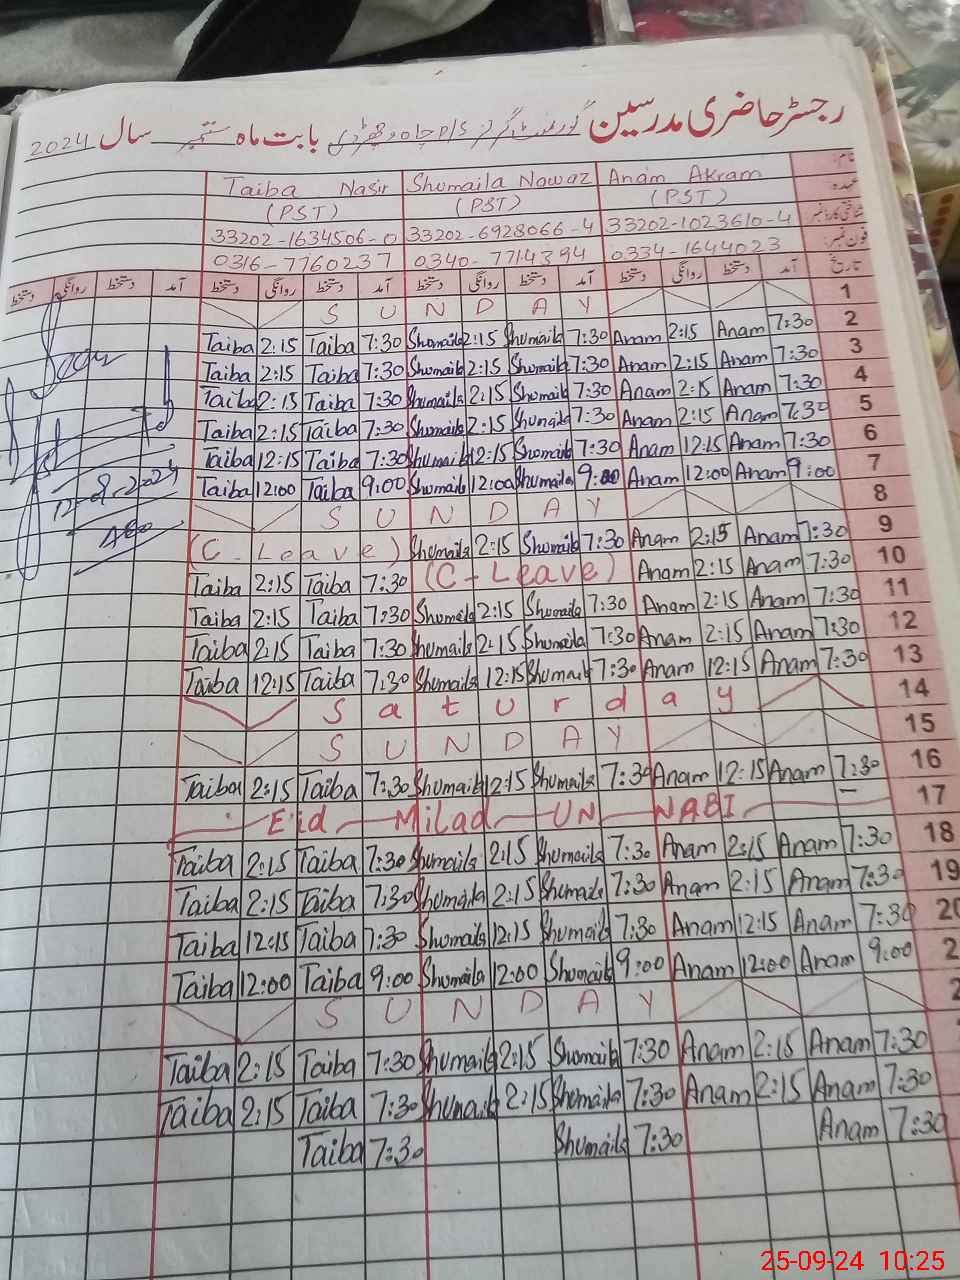 رجسٹر حاضری مدرسین گورنمنٹ گرلز P/S چاہ بابت ماہ ستمبر سال 2024
نام:
Taiba Nasir Shumaila Nawaz Anam Akram
عہدہ:
(PST) (PST) (PST)
شناختی کارڈ نمبر
33202-1634506-0 33202-6928066-4 33202-1023610-4
فون نمبر:
0316-7760237 0340-7714394 0334-1644023
تاریخ آمد دستخط روانگی دستخط آمد دستخط روانگی دستخط آمد دستخط روانگی دستخط آمد دستخط روانگی دستخط
SUNDAY 1
Taiba 2:15 Taiba 7:30 Shumaila 2:15 Shumaila 7:30 Anam 2:15 Anam 7:30 2
Taiba 2:15 Taiba 7:30 Shumaila 2:15 Shumaila 7:30 Anam 2:15 Anam 7:30 3
Taiba 2:15 Taiba 7:30 Shumaila 2:15 Shumaila 7:30 Anam 2:15 Anam 7:30 4
Taiba 2:15 Taiba 7:30 Shumaila 2:15 Shumaila 7:30 Anam 2:15 Anam 7:30 5
Taiba 12:15 Taiba 7:30 Shumaila 12:15 Shumaila 7:30 Anam 12:15 Anam 7:30 6
Taiba 12:00 Taiba 9:00 Shumaila 12:00 Shumaila 9:00 Anam 12:00 Anam 9:00 7
SUNDAY 8
(C-Leave) Shumaila 2:15 Shumaila 7:30 Anam 2:15 Anam 7:30 9
Taiba 2:15 Taiba 7:30 (C-Leave) Anam 2:15 Anam 7:30 10
Taiba 2:15 Taiba 7:30 Shumaila 2:15 Shumaila 7:30 Anam 2:15 Anam 7:30 11
Taiba 2:15 Taiba 7:30 Shumaila 2:15 Shumaila 7:30 Anam 2:15 Anam 7:30 12
Taiba 12:15 Taiba 7:30 Shumaila 12:15 Shumaila 7:30 Anam 12:15 Anam 7:30 13
Saturday 14
SUNDAY 15
Taiba 2:15 Taiba 7:30 Shumaila 12:15 Shumaila 7:30 Anam 12:15 Anam 7:30 16
Eid Milad UN NABI 17
Taiba 2:15 Taiba 7:30 Shumaila 2:15 Shumaila 7:30 Anam 2:15 Anam 7:30 18
Taiba 2:15 Taiba 7:30 Shumaila 2:15 Shumaila 7:30 Anam 2:15 Anam 7:30 19
Taiba 12:15 Taiba 7:30 Shumaila 12:15 Shumaila 7:30 Anam 12:15 Anam 7:30 20
Taiba 12:00 Taiba 9:00 Shumaila 12:00 Shumaila 9:00 Anam 12:00 Anam 9:00 2
SUNDAY 2
Taiba 2:15 Taiba 7:30 Shumaila 2:15 Shumaila 7:30 Anam 2:15 Anam 7:30
Taiba 2:15 Taiba 7:30 Shumaila 2:15 Shumaila 7:30 Anam 2:15 Anam 7:30
Taiba 7:30 Shumaila 7:30 Anam 7:30
25-09-24 10:25